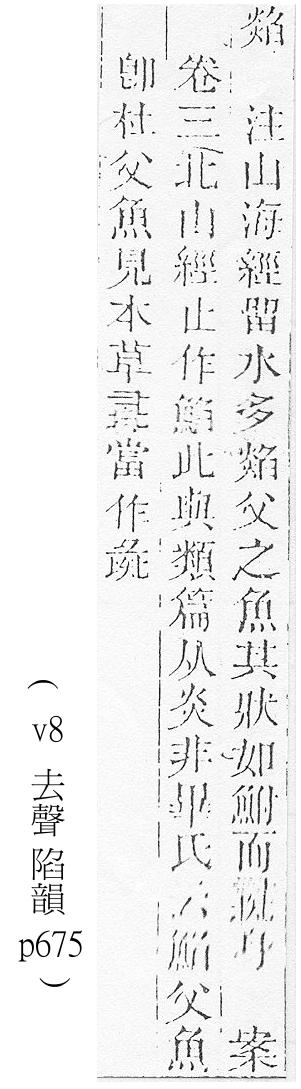 燄 注山海經留水多燄父之魚其狀如鮒而 身 案
卷三北山經止作䱤此與類篇从炎非畢氏云䱤父魚
卽杜父魚見本草 當作彘
(v8 去聲 陷韻 p675)